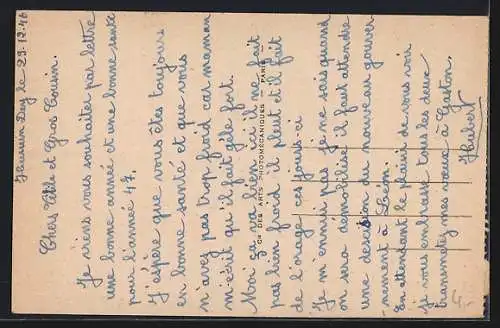 le 29.12.46
Chers Title et Gros Cousin.
Je viens vous souhaiter par lettre
une bonne année et une bonne santé
pour l'année 47.
J'espère que vous êtes toujours
en bonne santé et que vous
n'avez pas trop froid car maman
m'écrit qu'il fait gèle fort.
Moi ça va bien ici il ne fait
pas bien froid il pleut et il fait
de l'orage ces jours-ci.
Je m'ennui pas je ne sais quand
on sera démobilisé il faut attendre
une desesion du nouveau gouver
nement à Léon.
En attendant le plaisir de vous voir
je vous embrasse tous les deux
transmetez mes vœux à Gaston.
Hubert
Cie DES ARTS PHOTOMÉCANIQUES PARIS
4,-